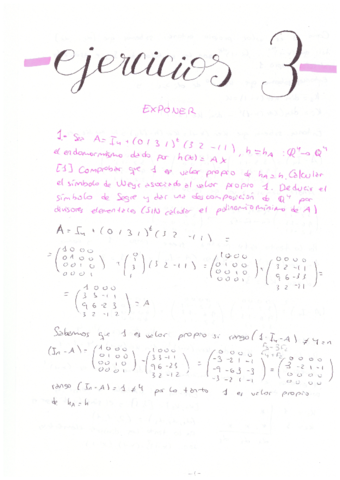 ejercicios 3
EXPONER
1- Sea A = I₄ + (0 1 3 1)ᵗ (3 2 -1 1), h = h_A : ℚ⁴ → ℚ⁴
el endomorfismo dado por h(x) = Ax
[1] Comprobar que 1 es valor propio de h_A = h. Calcular
el símbolo de Weyr asociado al valor propio 1. Deducir el
símbolo de Segre y dar una descomposición de ℚ⁴ por
divisores elementales (SIN calcular el polinomio mínimo de A)
A = I₄ + (0 1 3 1)ᵗ (3 2 -1 1) =
= (1 0 0 0 / 0 1 0 0 / 0 0 1 0 / 0 0 0 1) + (0 / 1 / 3 / 1) (3 2 -1 1) = (1 0 0 0 / 0 1 0 0 / 0 0 1 0 / 0 0 0 1) + (0 0 0 0 / 3 2 -1 1 / 9 6 -3 3 / 3 2 -1 1) =
= (1 0 0 0 / 3 3 -1 1 / 9 6 -2 3 / 3 2 -1 2) = A
Sabemos que 1 es valor propio si rango (1·I₄ - A) ≠ 4 = n
(I₄ - A) = (1 0 0 0 / 0 1 0 0 / 0 0 1 0 / 0 0 0 1) - (1 0 0 0 / 3 3 -1 1 / 9 6 -2 3 / 3 2 -1 2) = (0 0 0 0 / -3 -2 1 -1 / -9 -6 3 -3 / -3 -2 1 -1) = (0 0 0 0 / -3 -2 1 -1 / 0 0 0 0 / 0 0 0 0)
rango (I₄ - A) = 1 ≠ 4 por lo tanto 1 es valor propio
de h_A = h
-1-